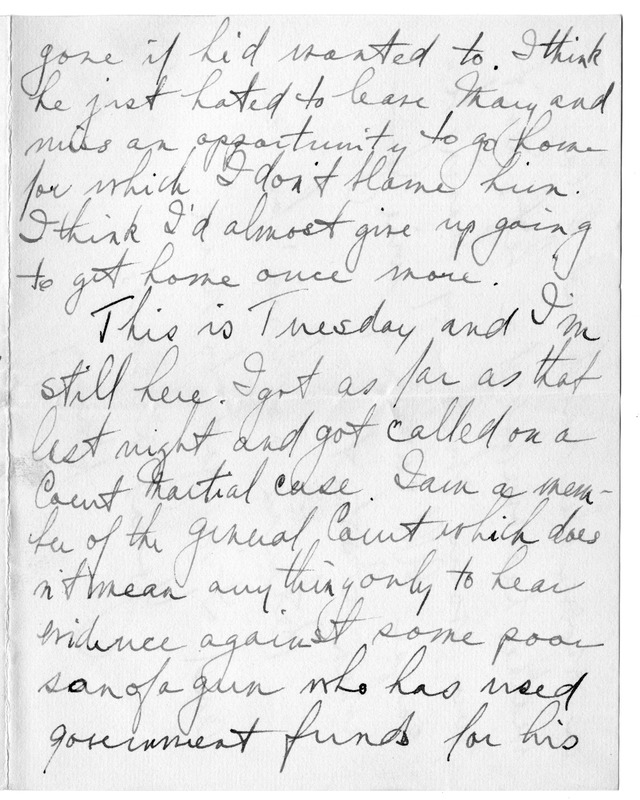 gone if he'd wanted to. I think
he just hated to leave Mary and
miss an opportunity to go home
for which I don't blame him.
I think I'd almost give up going
to get home once more.
This is Tuesday and I'm
still here. I got as far as that
last night and got called on a
Court Martial case. I am a mem-
ber of the General Court which does
n't mean anything only to hear
evidence against some poor
son of a gun who has used
government funds for his